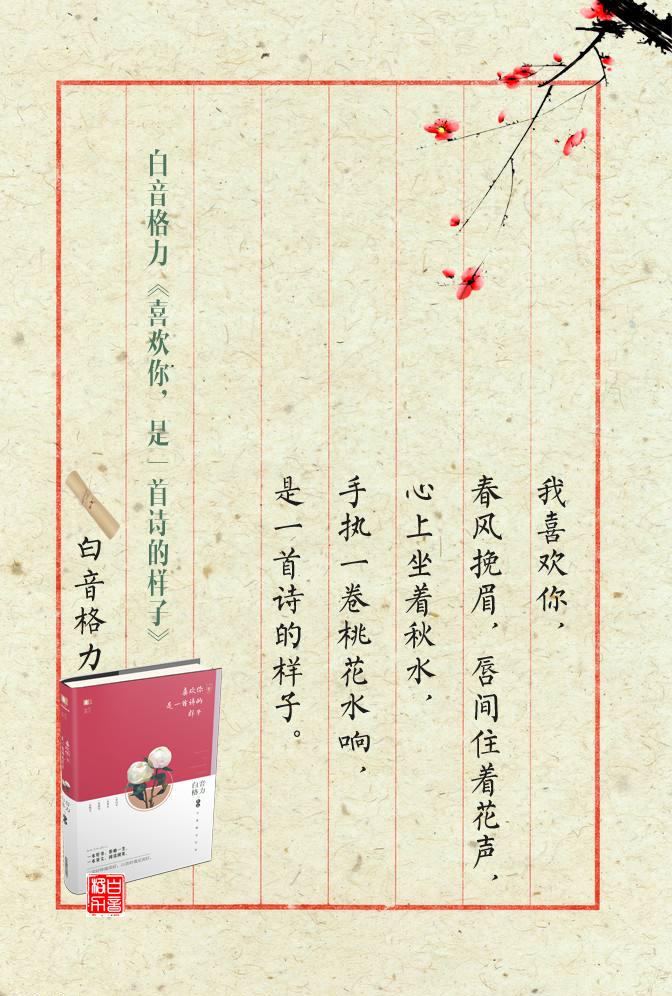 我喜欢你，
春风挽眉，唇间住着花声，
心上坐着秋水，
手执一卷桃花水响，
是一首诗的样子。
白音格力《喜欢你，是一首诗的样子》
白音格力
喜欢你
是一首诗的
样子
白音
格力
白音
格力